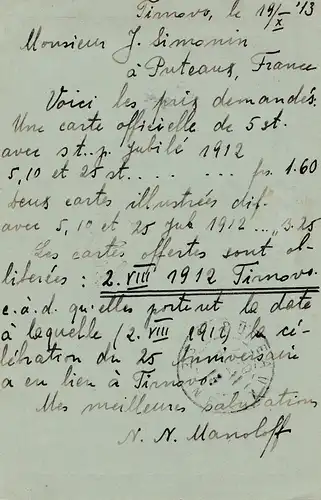 Tirnovo, le 19/X '13
Monsieur J. Simonin
à Puteaux, France
Voici les prix demandés.
Une carte officielle de 5 st.
avec st. p. Jubilé 1912
5, 10 et 25 st. . . . . . . frs. 1.60
Deux cartes illustrées dif.
avec 5, 10 et 25 Jub 1912 ... „ 3.25
Les cartes offertes sont ob
literées : 2. VIII 1912 Tirnovo.
c. à. d. qu'elles portent la date
à laquelle (2. VIII 1912) la cé-
lébration du 25 anniversaire
a eu lieu à Tirnovo.
Mes meilleures salutations
N. N. Manoloff